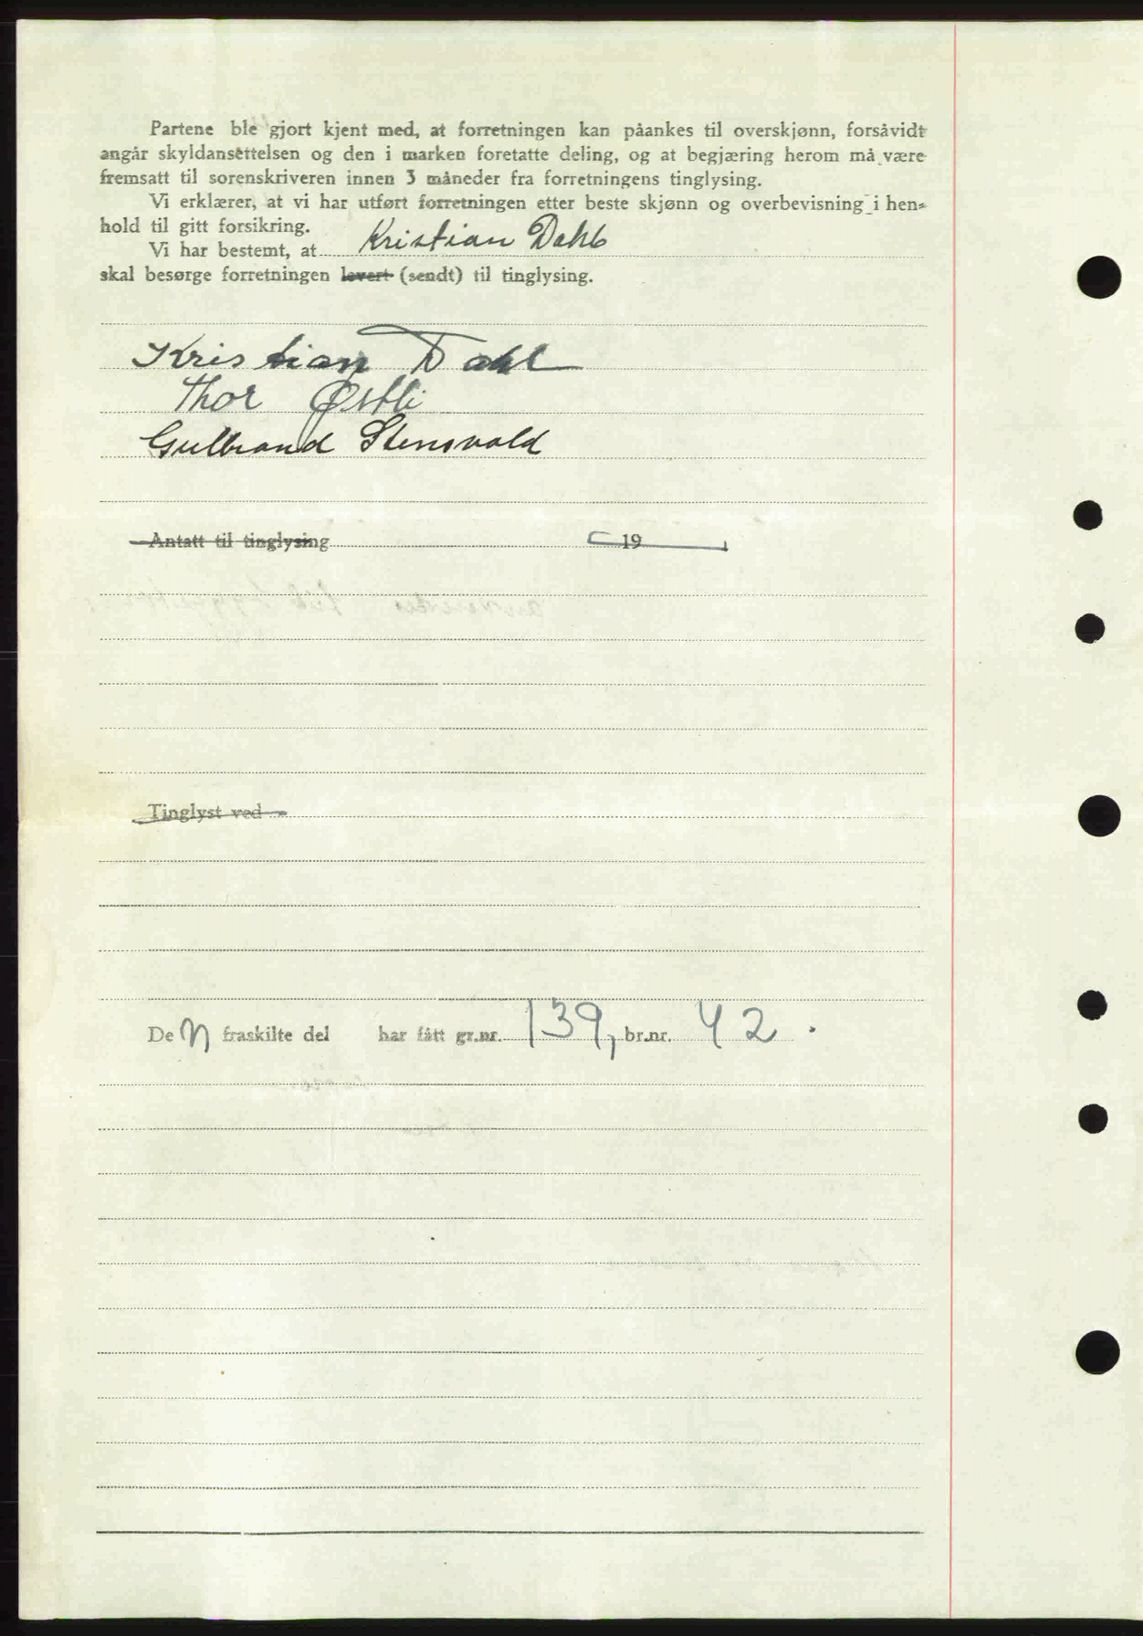 Partene ble gjort kjent med, at forretningen kan påankes til overskjønn, forsåvidt
angår skyldansettelsen og den i marken foretatte deling, og at begjæring herom må være
fremsatt til sorenskriveren innen 3 måneder fra forretningens tinglysing.
Vi erklærer, at vi har utført forretningen etter beste skjønn og overbevisning i hen-
hold til gitt forsikring.
Vi har bestemt, at Kristian Dahl
skal besørge forretningen levert (sendt) til tinglysing.
Kristian Dahl
Thor Østli
Gulbrand Stensvold
Antatt til tinglysing 19
Tinglyst ved
De n fraskilte del har fått gr.nr. 139, br.nr. 42.